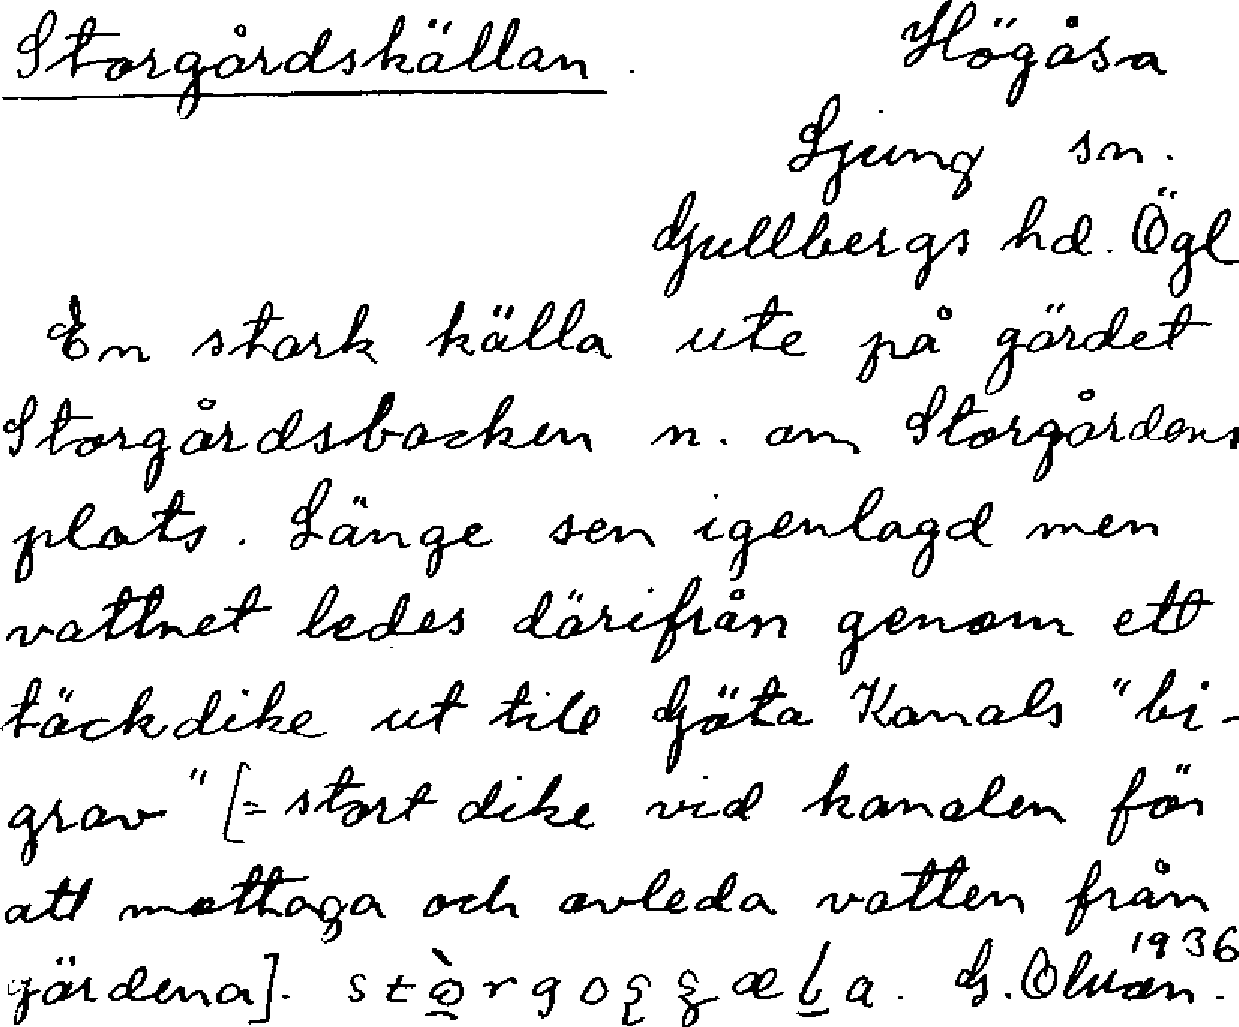 Storgårdskällan. Högåsa
Ljung sn.
Gullbergs hd. Ögl
En stark källa ute på gärdet
Storgårdsbacken n. om Storgårdens
plats. Länge sen igenlagd men
vattnet ledes därifrån genom ett
täckdike ut till Göta Kanals "bi-
grav" [= stort dike vid kanalen för
att mottaga och avleda vatten från
gärdena]. G. 1936